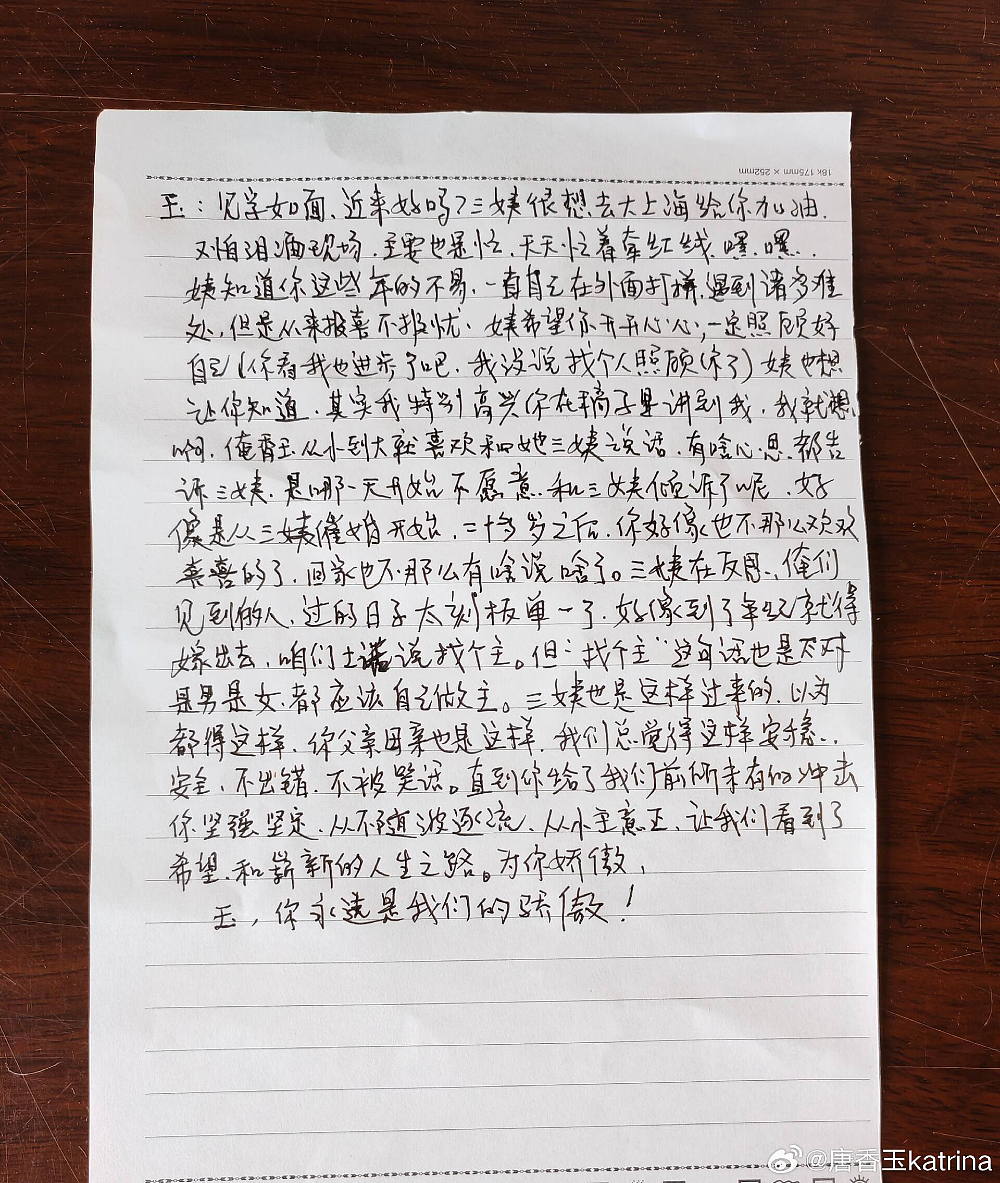 18k 175mm × 252mm
玉：见字如面、近来好吗？三姨很想去大上海给你加油、
又怕泪洒现场、主要也是忙、天天忙着牵红线、嘿、嘿、
姨知道你这些年的不易、一直自己在外面打拼、遇到诸多难
处、但是从来报喜不报忧、姨希望你开开心心、一定照顾好
自己（你看我也进步了吧、我没说找个人照顾你了）姨也想
让你知道、其实我特别高兴你在稿子里讲到我、我就想、
啊、俺香玉从小到大就喜欢和她三姨说话、有啥心思都告
诉三姨、是哪一天开始不愿意和三姨倾诉了呢、好
像是从三姨催婚开始、二十多岁之后、你好像也不那么欢欢
喜喜的了、回家也不那么有啥说啥了。三姨在反思、俺们
见到的人、过的日子太刻板单一了、好像到了年纪就得
嫁出去、咱们土话说找个主。但“找个主”这句话也是不对
是男是女、都应该自己做主。三姨也是这样过来的、以为
都得这样、你父亲母亲也是这样、我们总觉得这样安稳、
安全、不出错、不被笑话。直到你给了我们前所未有的冲击
你坚强坚定、从不随波逐流、从小主意正、让我们看到了
希望、和崭新的人生之路。为你娇傲、
玉，你永远是我们的骄傲！
@唐香玉katrina